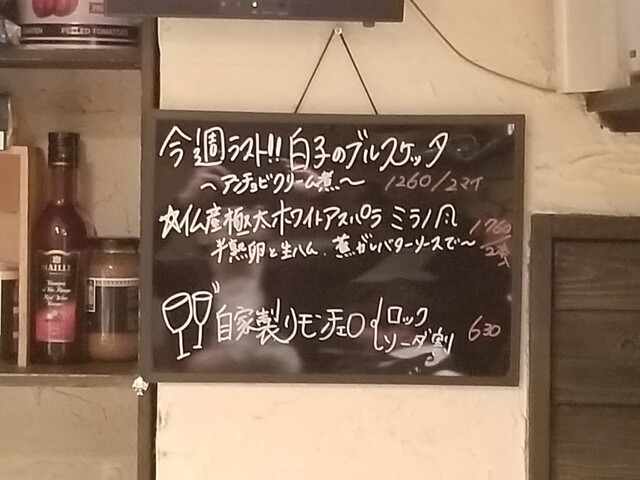 PEELED TOMATOES
今週ラスト!! 白子のブルスケッタ
〜アンチョビクリーム煮〜 1260/2マイ
☆仏産極太ホワイトアスパラ ミラノ風 1760/2本
半熟卵と生ハム、焦がしバターソースで〜
自家製リモンチェロ
ロック
ソーダ割 630
MAILLE